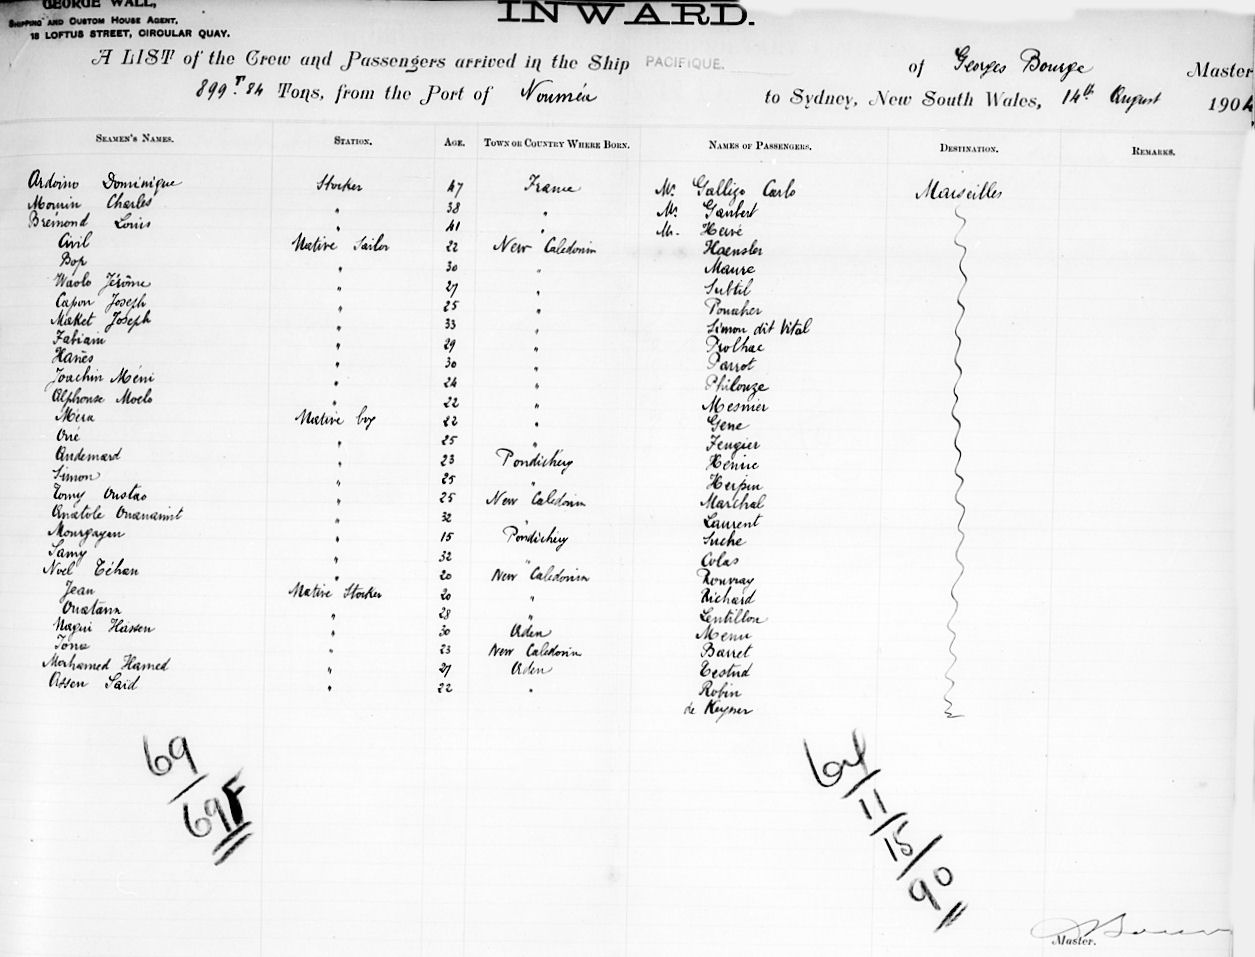 GEORGE WALL,
SHIPPING AND CUSTOM HOUSE AGENT,
18 LOFTUS STREET, CIRCULAR QUAY.
INWARD.
A LIST of the Crew and Passengers arrived in the Ship PACIFIQUE. of Georges Bourge Master
899 T. 84 Tons, from the Port of Nouméa to Sydney, New South Wales, 14th August 1904
SEAMEN'S NAMES. STATION. AGE. TOWN OR COUNTRY WHERE BORN. NAMES OF PASSENGERS. DESTINATION. REMARKS.
Ardoino Dominique Stocker 47 France Mr Galligo Carlo Marseilles
Charles " 38 " Mr Gaubert
Brémond Louis " 41 " Mr. Hervé
Civil Native Sailor 22 New Caledonia Haensler
Bop " 30 " Maure
Waolo Jérôme " 27 " Subtil
Capon Joseph " 25 "
Maket Joseph " 33 " Simon dit Vital
Fabiani " 29 " Trolhac
Hanès " 30 " Parrot
Joachin Méni " 24 " Philouze
Alphonse Moelo " 22 " Mesnier
Méra Native boy 22 " Gene
Orré " 25 " Feugier
Andemard " 23 Pondichéry
Simon " 25 " Herpin
Tomy Oustao " 25 New Caledonia Marchal
Anatole " 32 " Laurent
Mourgayan " 15 Pondichéry Suche
Samy " 32 " Colas
Noel Téhan " 20 New Caledonia Rouvray
Jean Native Stocker 20 " Richard
Ouatann " 28 " Lentillon
Nagui Hassen " 30 Aden Menu
Iona " 23 New Caledonia Barret
Mohamed Hamed " 27 Aden Testud
Assen Said " 22 " Robin
de Keyser
69
69F
64/11/15/90
Master.